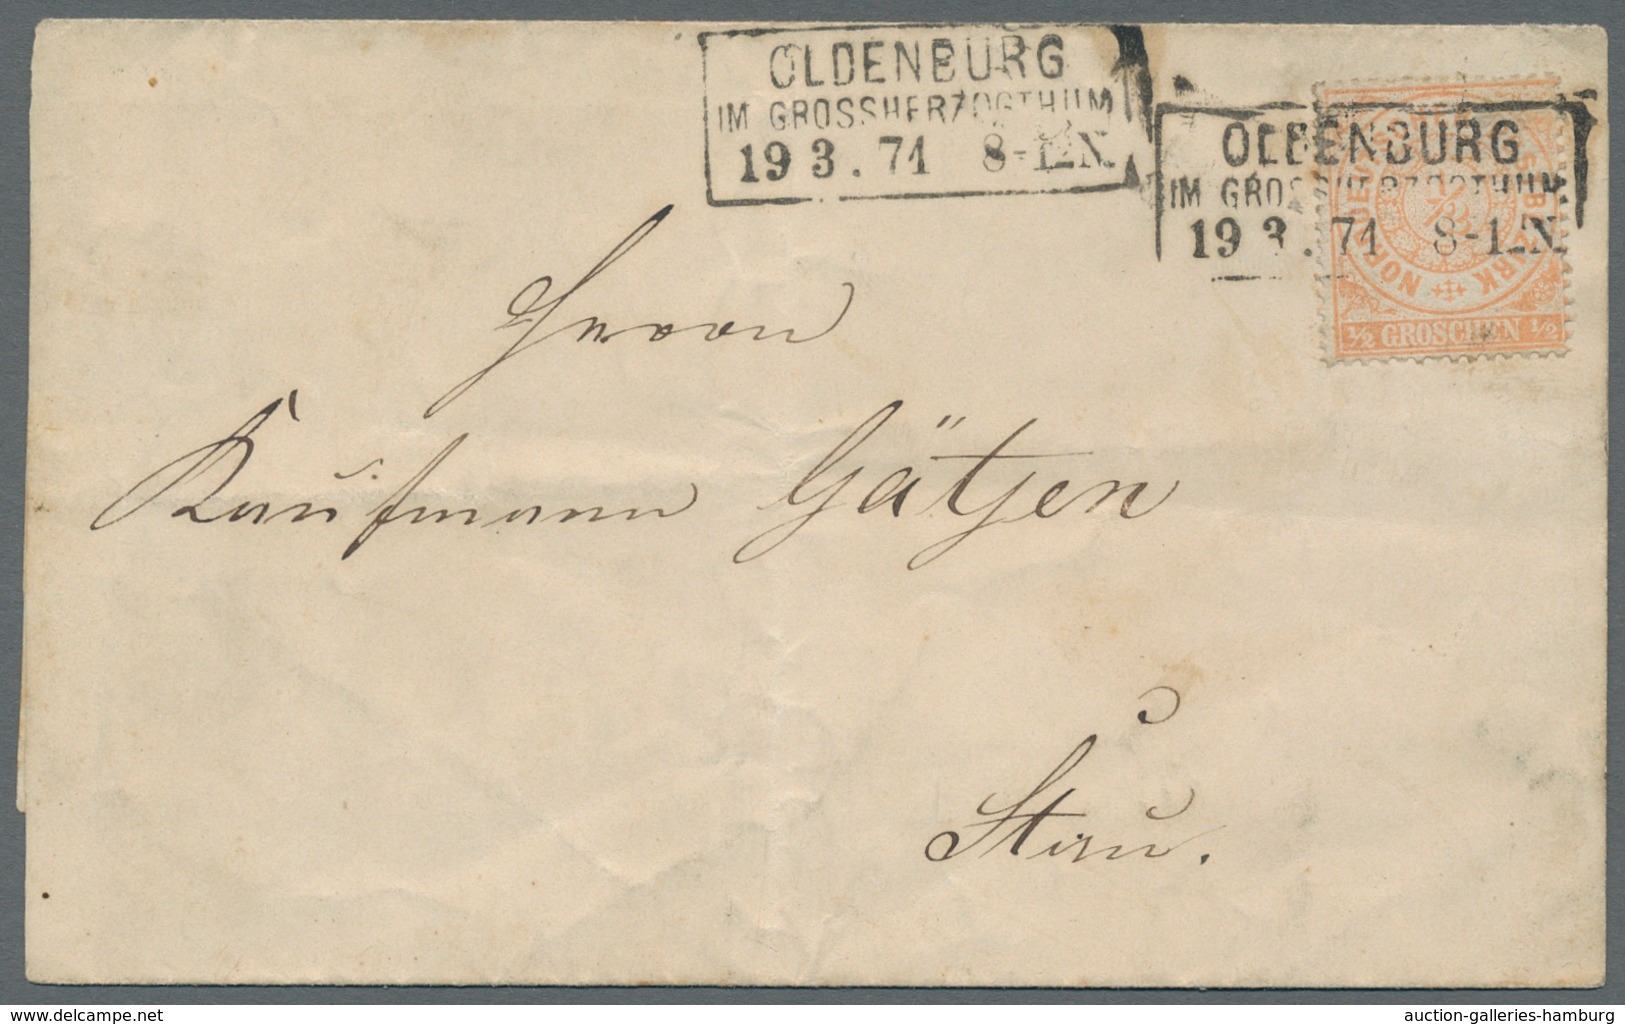 OLDENBURG
IM GROSSHERZOGTHUM
19 3. 71 8-12N.
OLDENBURG
IM GROSSHERZOGTHUM
19 3. 71 8-12N.
NORDDEUTSCHER POSTBEZIRK
1/2
1/2 GROSCHEN 1/2
Herrn
Kaufmann Gätjen
Stau.
www.delcampe.net
auction-galleries-hamburg